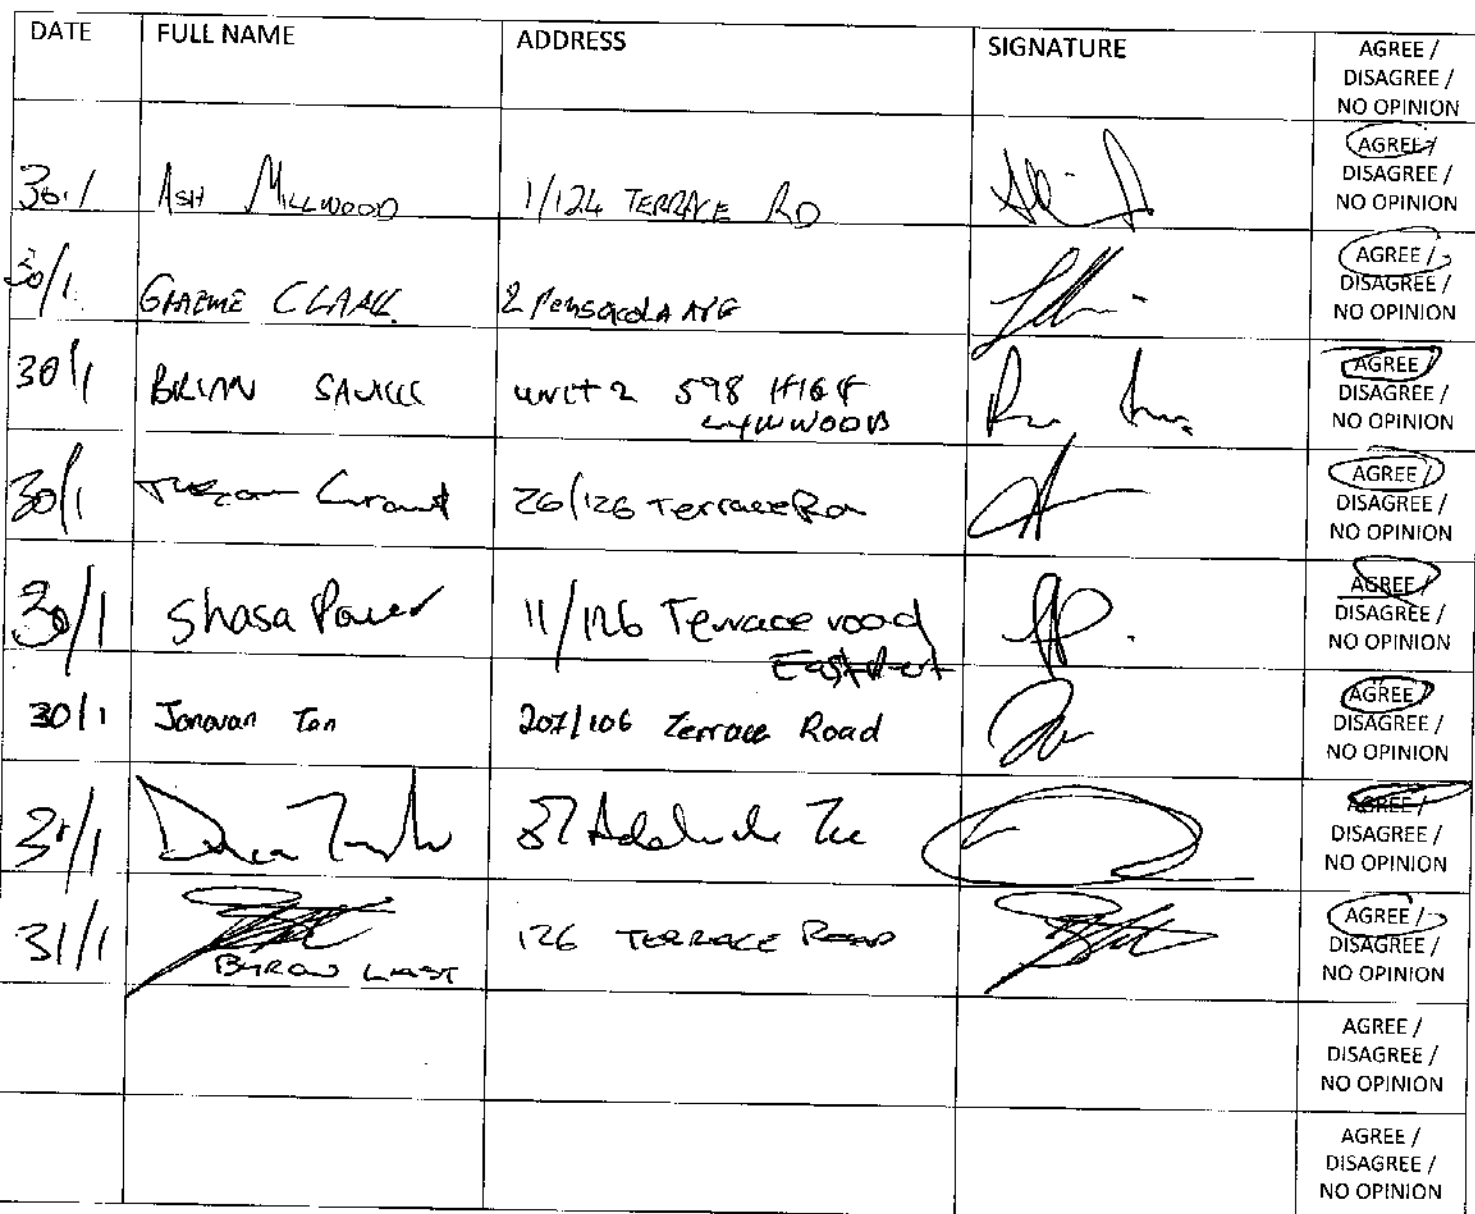 DATE FULL NAME ADDRESS SIGNATURE AGREE /
DISAGREE /
NO OPINION
30/1 ASH MILLWOOD 1/124 TERRACE RD AGREE /
DISAGREE /
NO OPINION
30/1 GRAEME CLARK 2 Pensacola AVE AGREE /
DISAGREE /
NO OPINION
30/1 BRIAN unit 2 598 AGREE /
LYNWOOD DISAGREE /
NO OPINION
30/1 26/126 Terrace AGREE /
DISAGREE /
NO OPINION
30/1 Shasa Power 11/126 Terrace road AGREE /
East DISAGREE /
NO OPINION
30/1 Jonovan Tan 207/106 Terrace Road AGREE /
DISAGREE /
NO OPINION
31/1 37 Adelaide Tce AGREE /
DISAGREE /
NO OPINION
31/1 126 TERRACE ROAD AGREE /
BYRON LAST DISAGREE /
NO OPINION
AGREE /
DISAGREE /
NO OPINION
AGREE /
DISAGREE /
NO OPINION